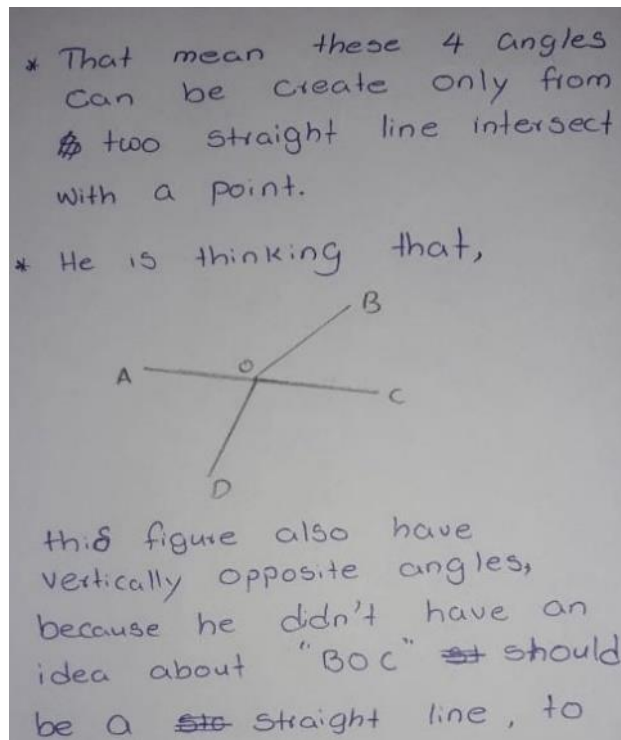 * That mean these 4 angles
can be create only from
two straight line intersect
with a point.
* He is thinking that,
B
A O C
D
this figure also have
vertically opposite angles,
because he didn't have an
idea about "BOC" should
be a straight line, to